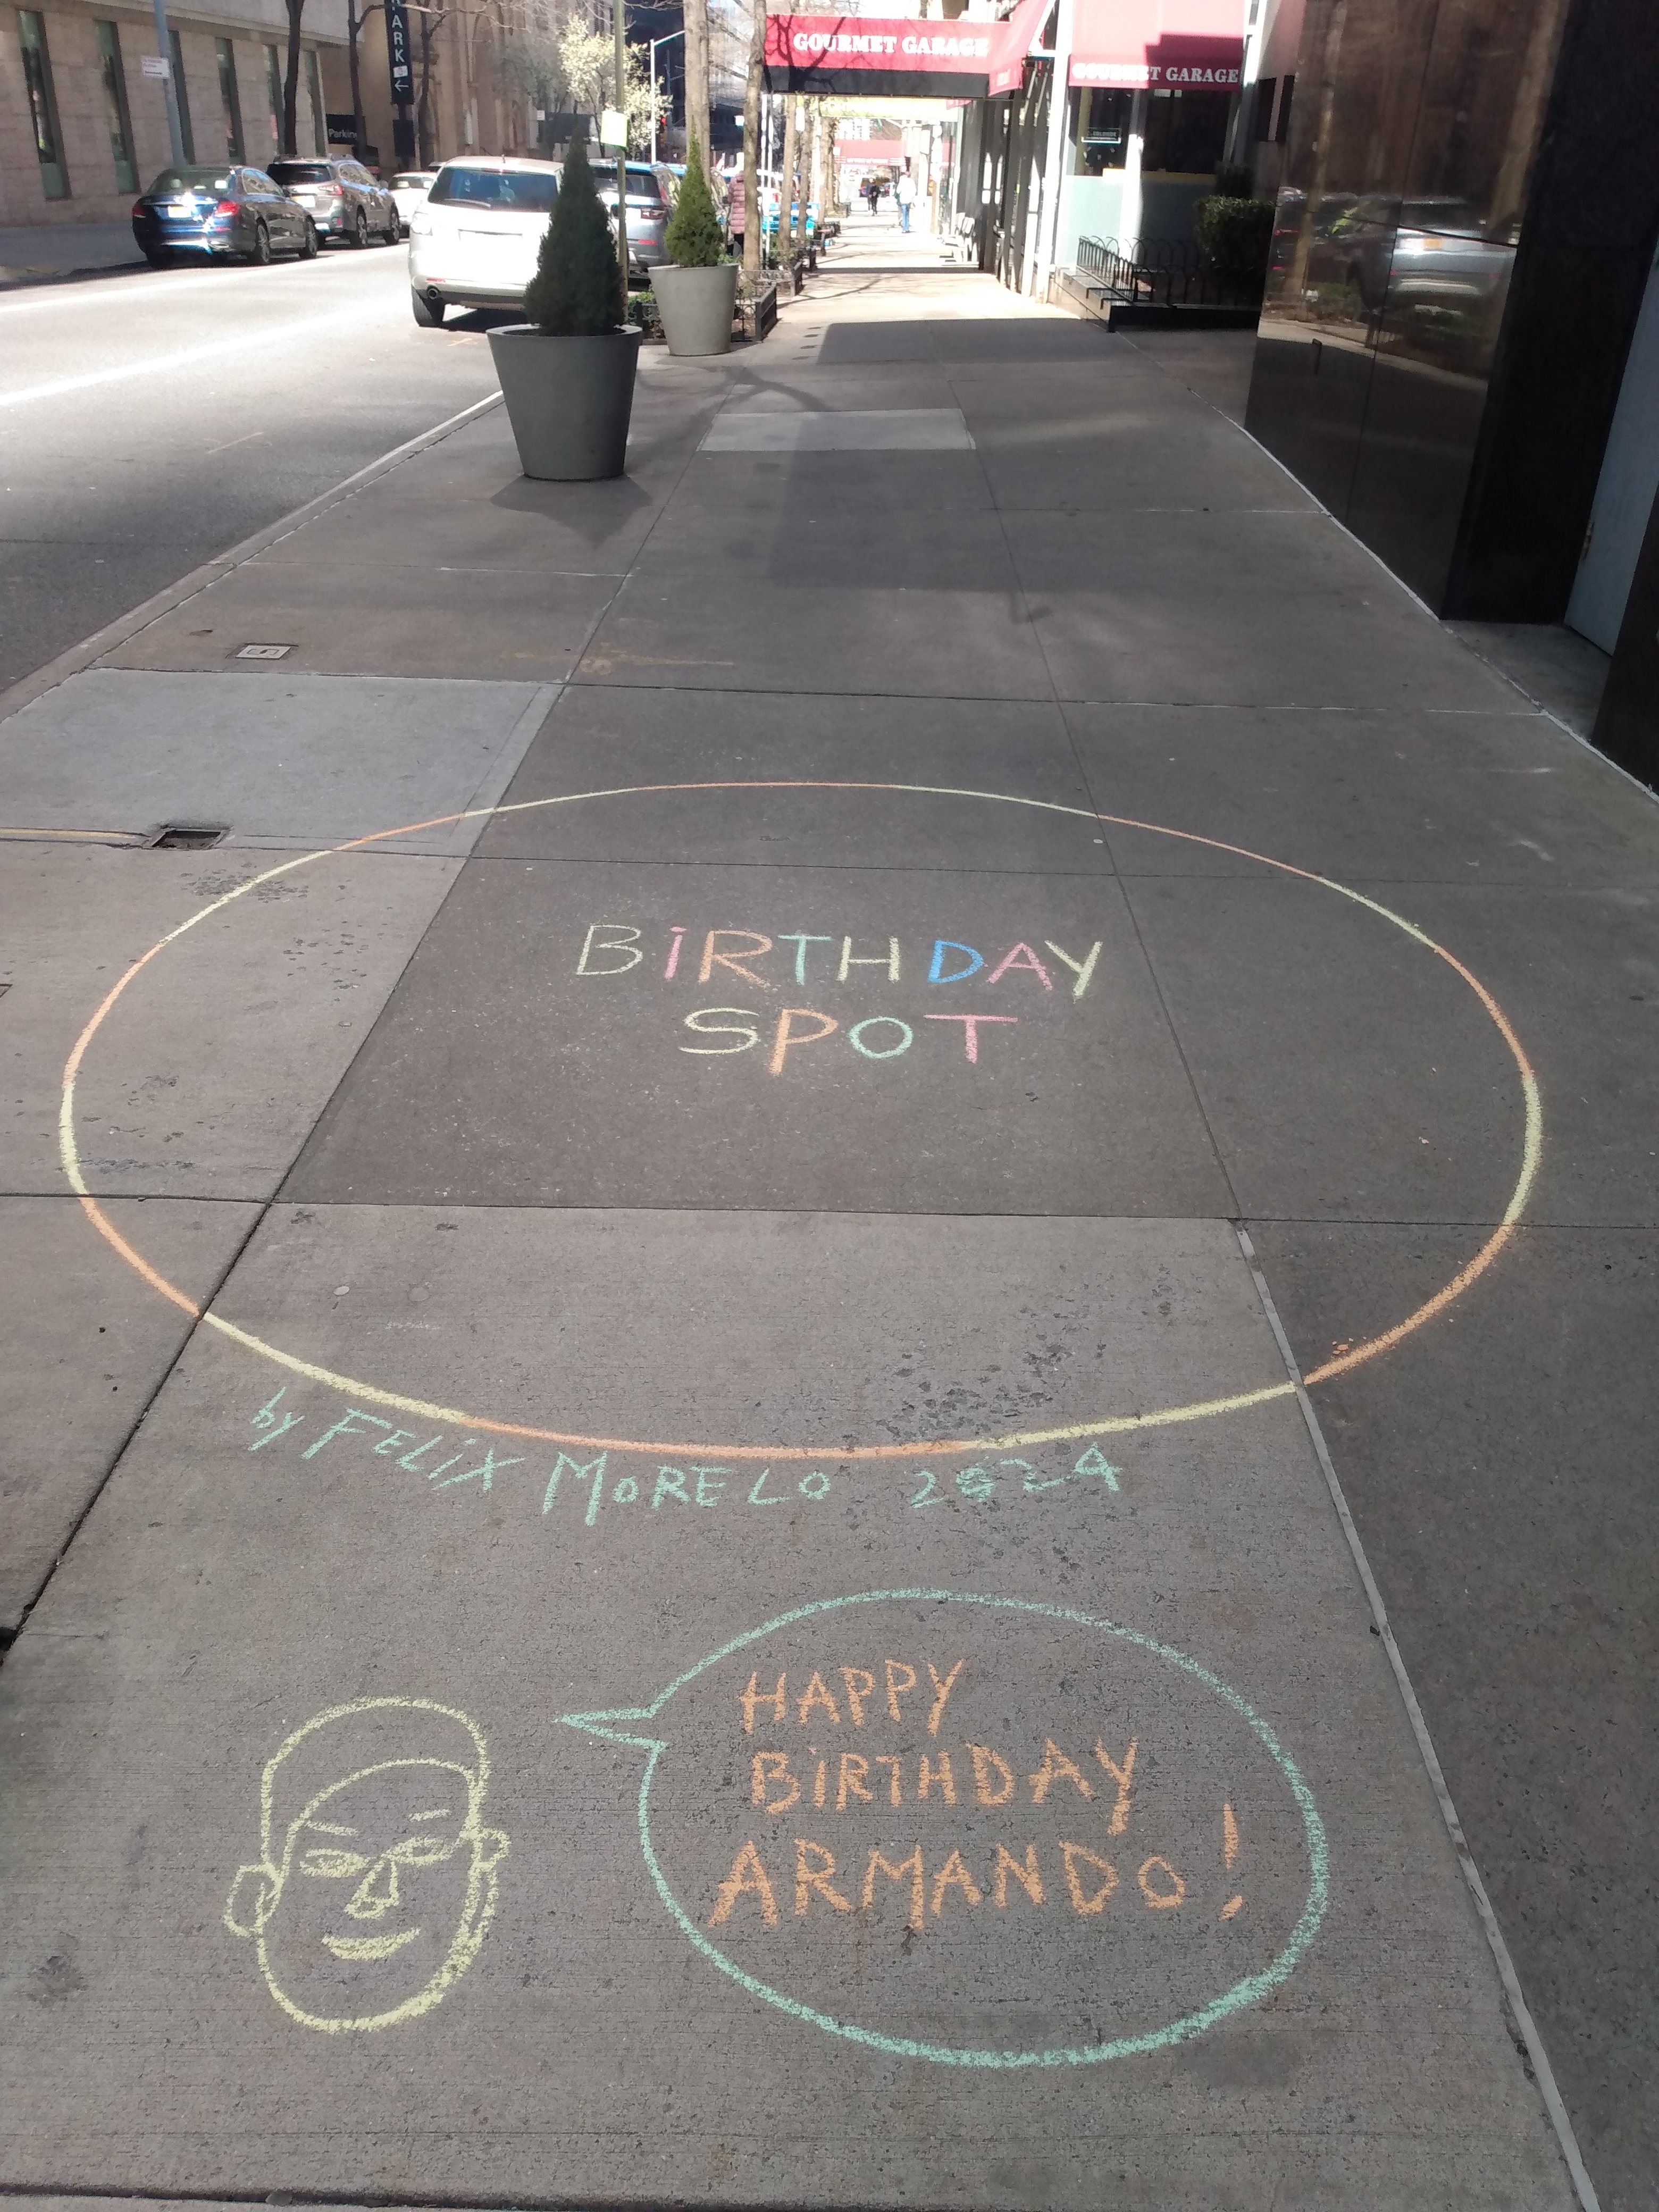 PARK
Parking
GOURMET GARAGE
GOURMET GARAGE
BiRTHDAY
SPOT
by FELiX MORELO 2024
HAPPY
BiRTHDAY
ARMANDO!